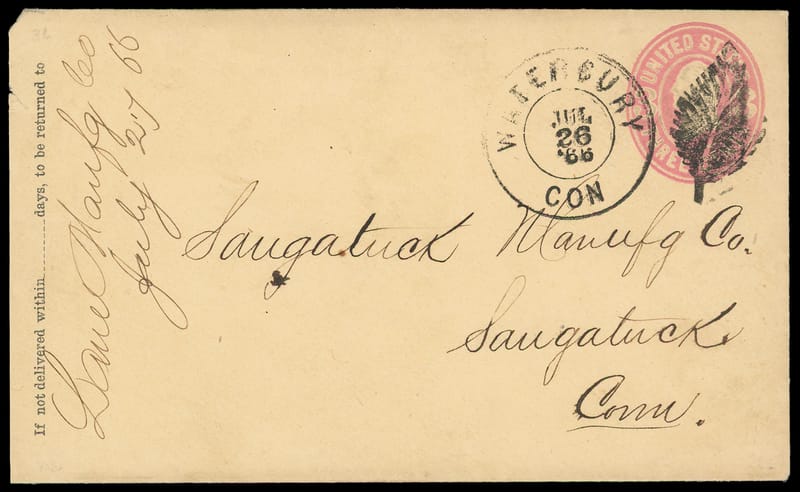 If not delivered within ........ days, to be returned to
Lane Manfg Co
July 25/66
WATERBURY
JUL
26
'66
CON
UNITED STA
THREE
Saugatuck Manufg Co.
Saugatuck
Conn.